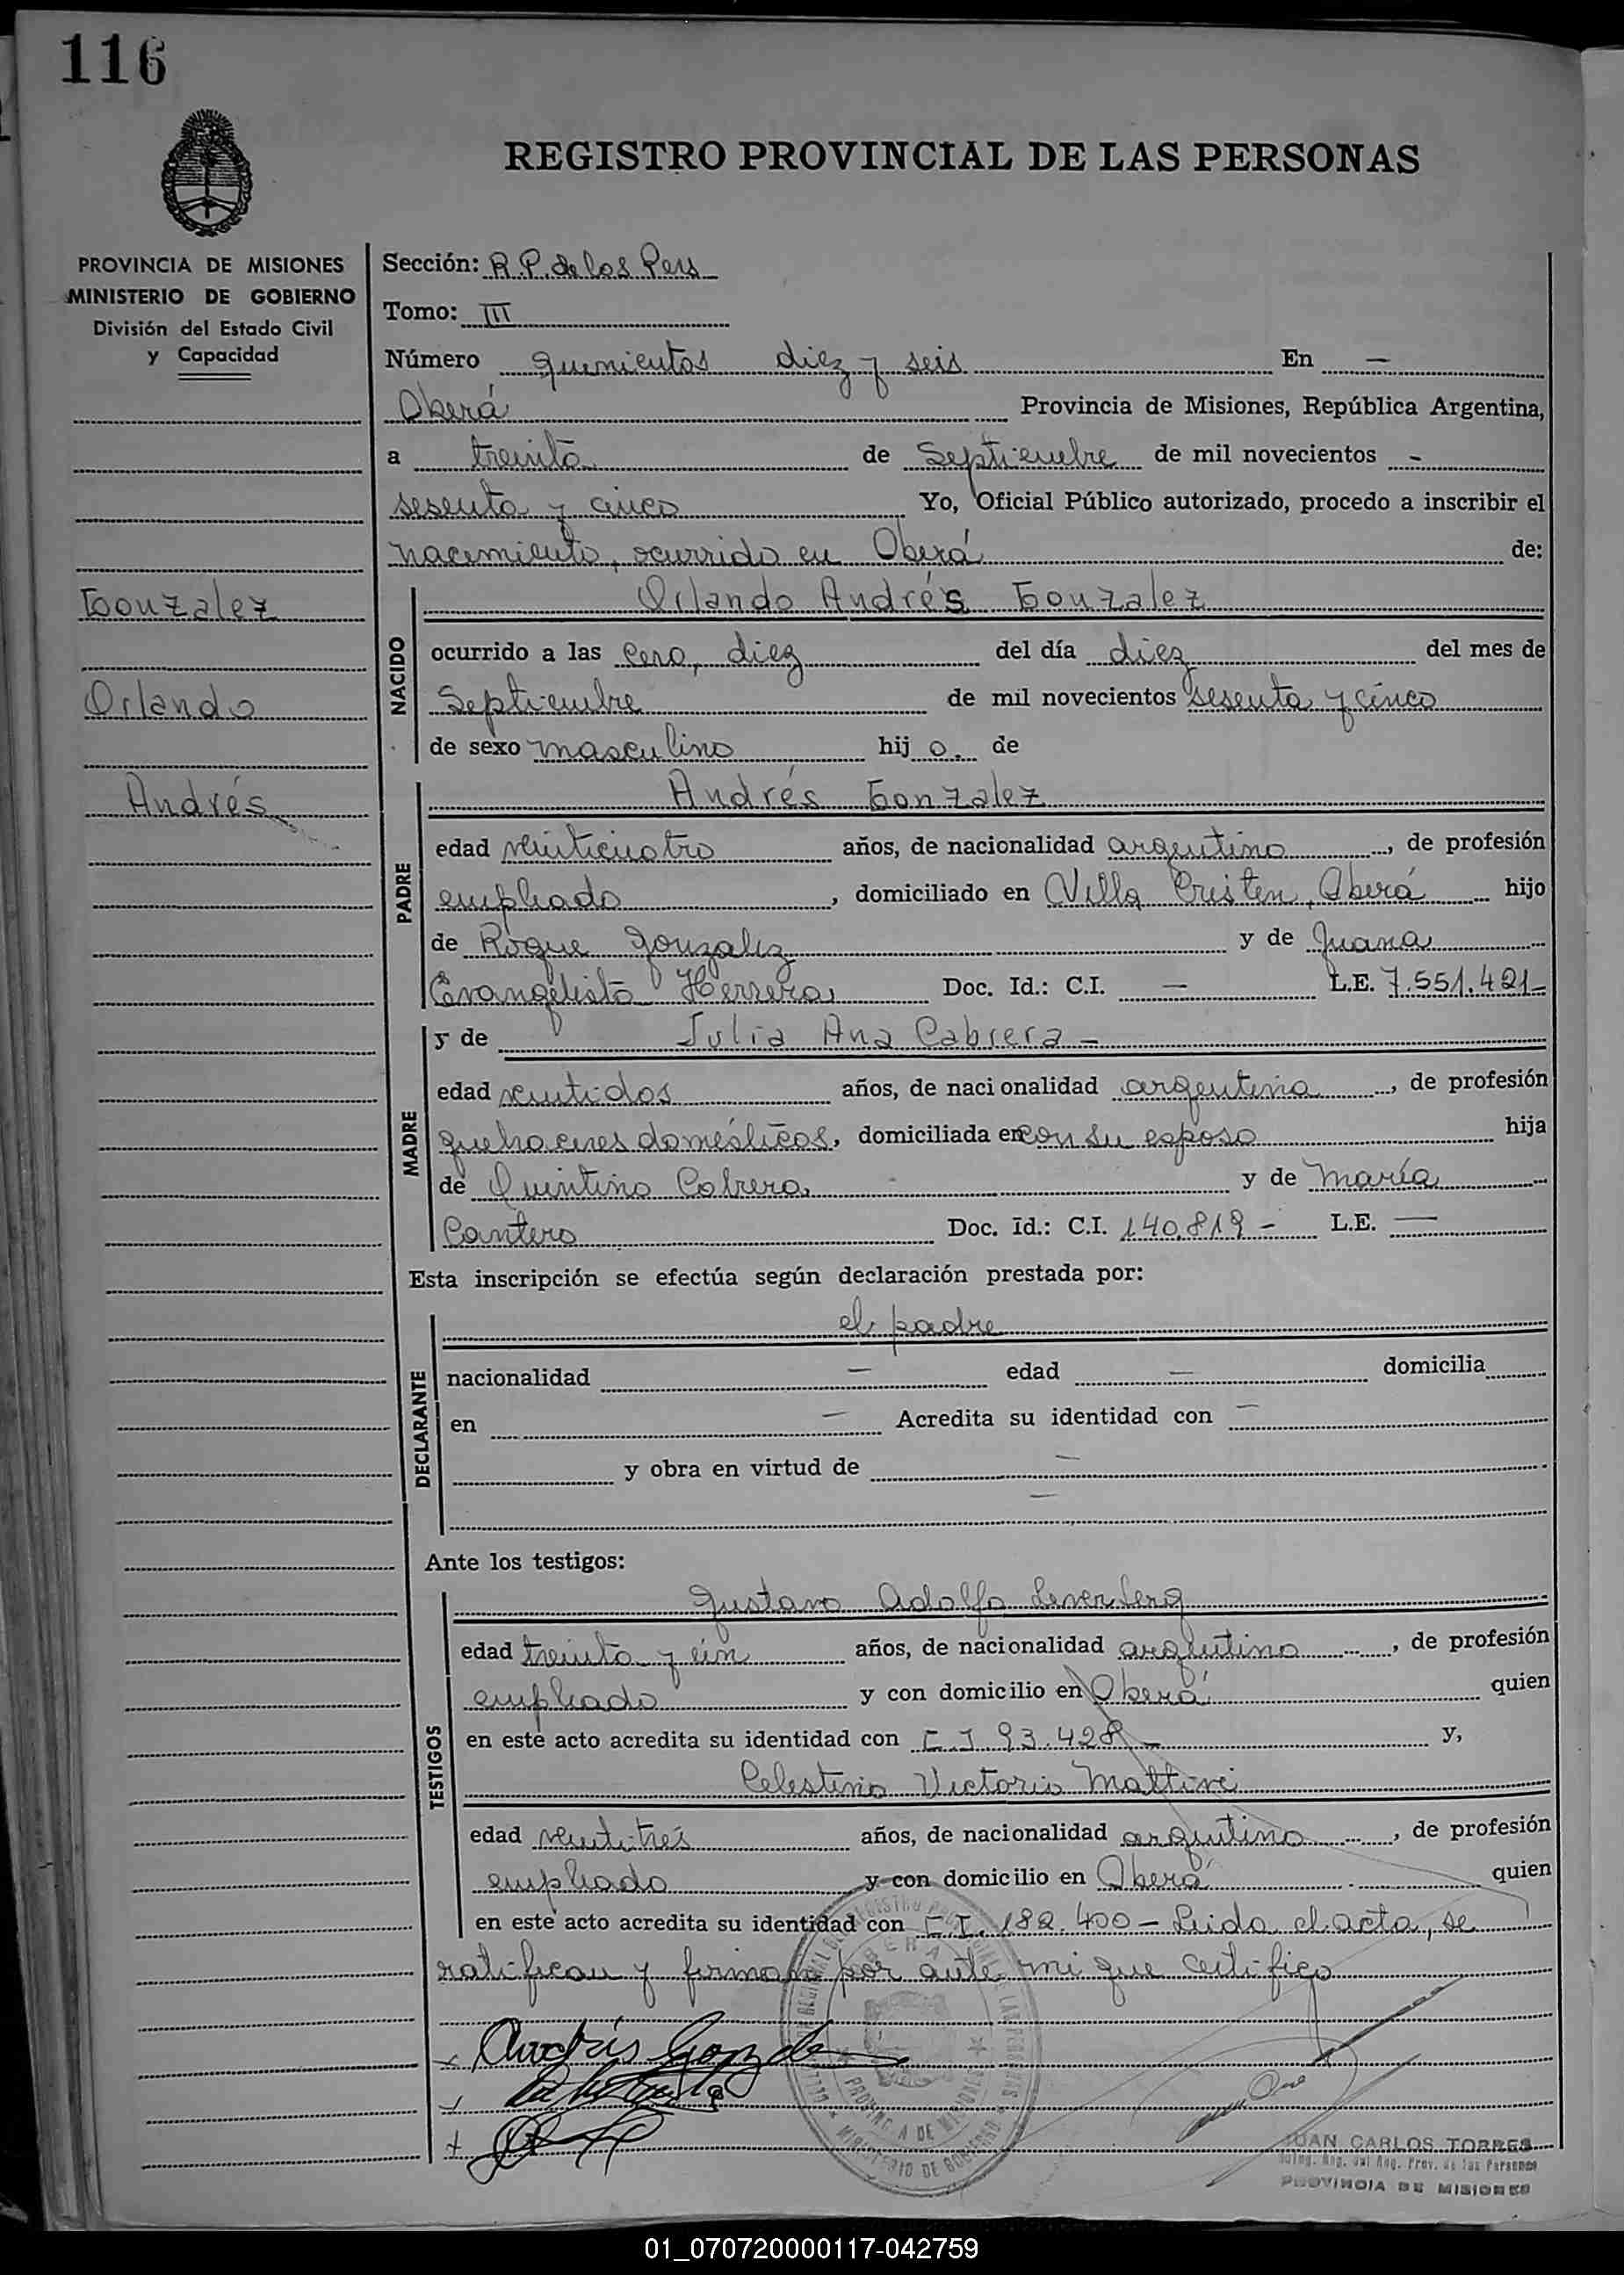 116
REGISTRO PROVINCIAL DE LAS PERSONAS
PROVINCIA DE MISIONES
MINISTERIO DE GOBIERNO
División del Estado Civil
y Capacidad
Gonzalez
Orlando
Andrés
Sección: R.P. de las Pers
Tomo: III
Número quinientos diez y seis En —
Oberá Provincia de Misiones, República Argentina,
a treinta de Septiembre de mil novecientos -
sesenta y cinco Yo, Oficial Público autorizado, procedo a inscribir el
nacimiento, ocurrido en Oberá de:
NACIDO
Orlando Andrés Gonzalez
ocurrido a las cero, diez del día diez del mes de
Septiembre de mil novecientos sesenta y cinco
de sexo masculino hij o. de
PADRE
Andrés Gonzalez
edad veinticuatro años, de nacionalidad argentino, de profesión
empleado, domiciliado en Villa Cristen, Oberá hijo
de Roque Gonzalez y de Juana
Evangelista Herrera Doc. Id.: C.I. — L.E. 7.551.421-
MADRE
y de Julia Ana Cabrera -
edad veintidos años, de naci onalidad argentina, de profesión
quehaceres domésticos, domiciliada en con su esposo hija
de Quintino Cabrera y de María
Cantero Doc. Id.: C.I. 140.819 - L.E. —
Esta inscripción se efectúa según declaración prestada por:
DECLARANTE
el padre
nacionalidad — edad — domicilia
en — Acredita su identidad con —
y obra en virtud de —
—
Ante los testigos:
TESTIGOS
Gustavo Adolfo
edad treinta y un años, de nacionalidad argentino, de profesión
empleado y con domicilio en Oberá quien
en este acto acredita su identidad con C.I 93.428 - y,
Celestino Victorio Mattivi
edad veintitrés años, de nacionalidad argentino, de profesión
empleado y con domicilio en Oberá quien
en este acto acredita su identidad con C.I. 182.400 - Leída el acta, se
ratifican y firman por ante mi que certifico
Andrés Gonzalez
OBERA
PROVINCIA DE MISIONES
MINISTERIO DE GOBIERNO
JUAN CARLOS TORRES
Reg. Prov. de las Personas
PROVINCIA DE MISIONES
01_070720000117-042759